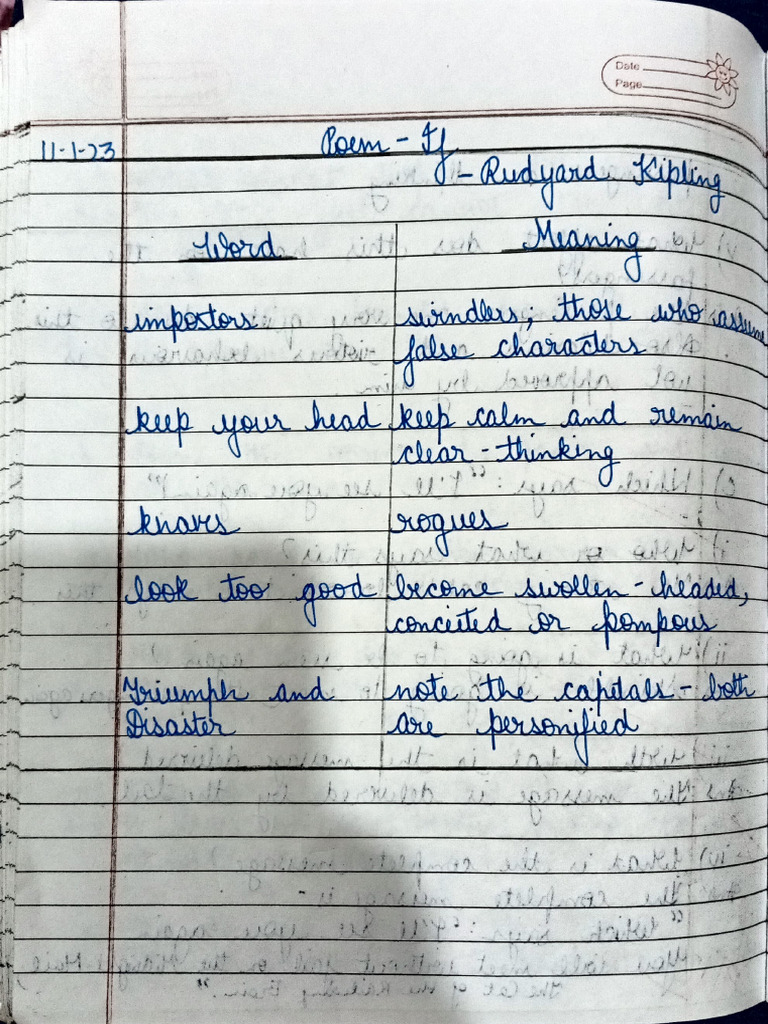 Date
Page
11-1-23 Poem - If
- Rudyard Kipling
Word Meaning
impostors swindlers; those who assume
false characters
keep your head keep calm and remain
clear - thinking
knaves rogues
look too good become swollen - headed,
conceited or pompous
Triumph and note the capitals - both
Disaster are personified